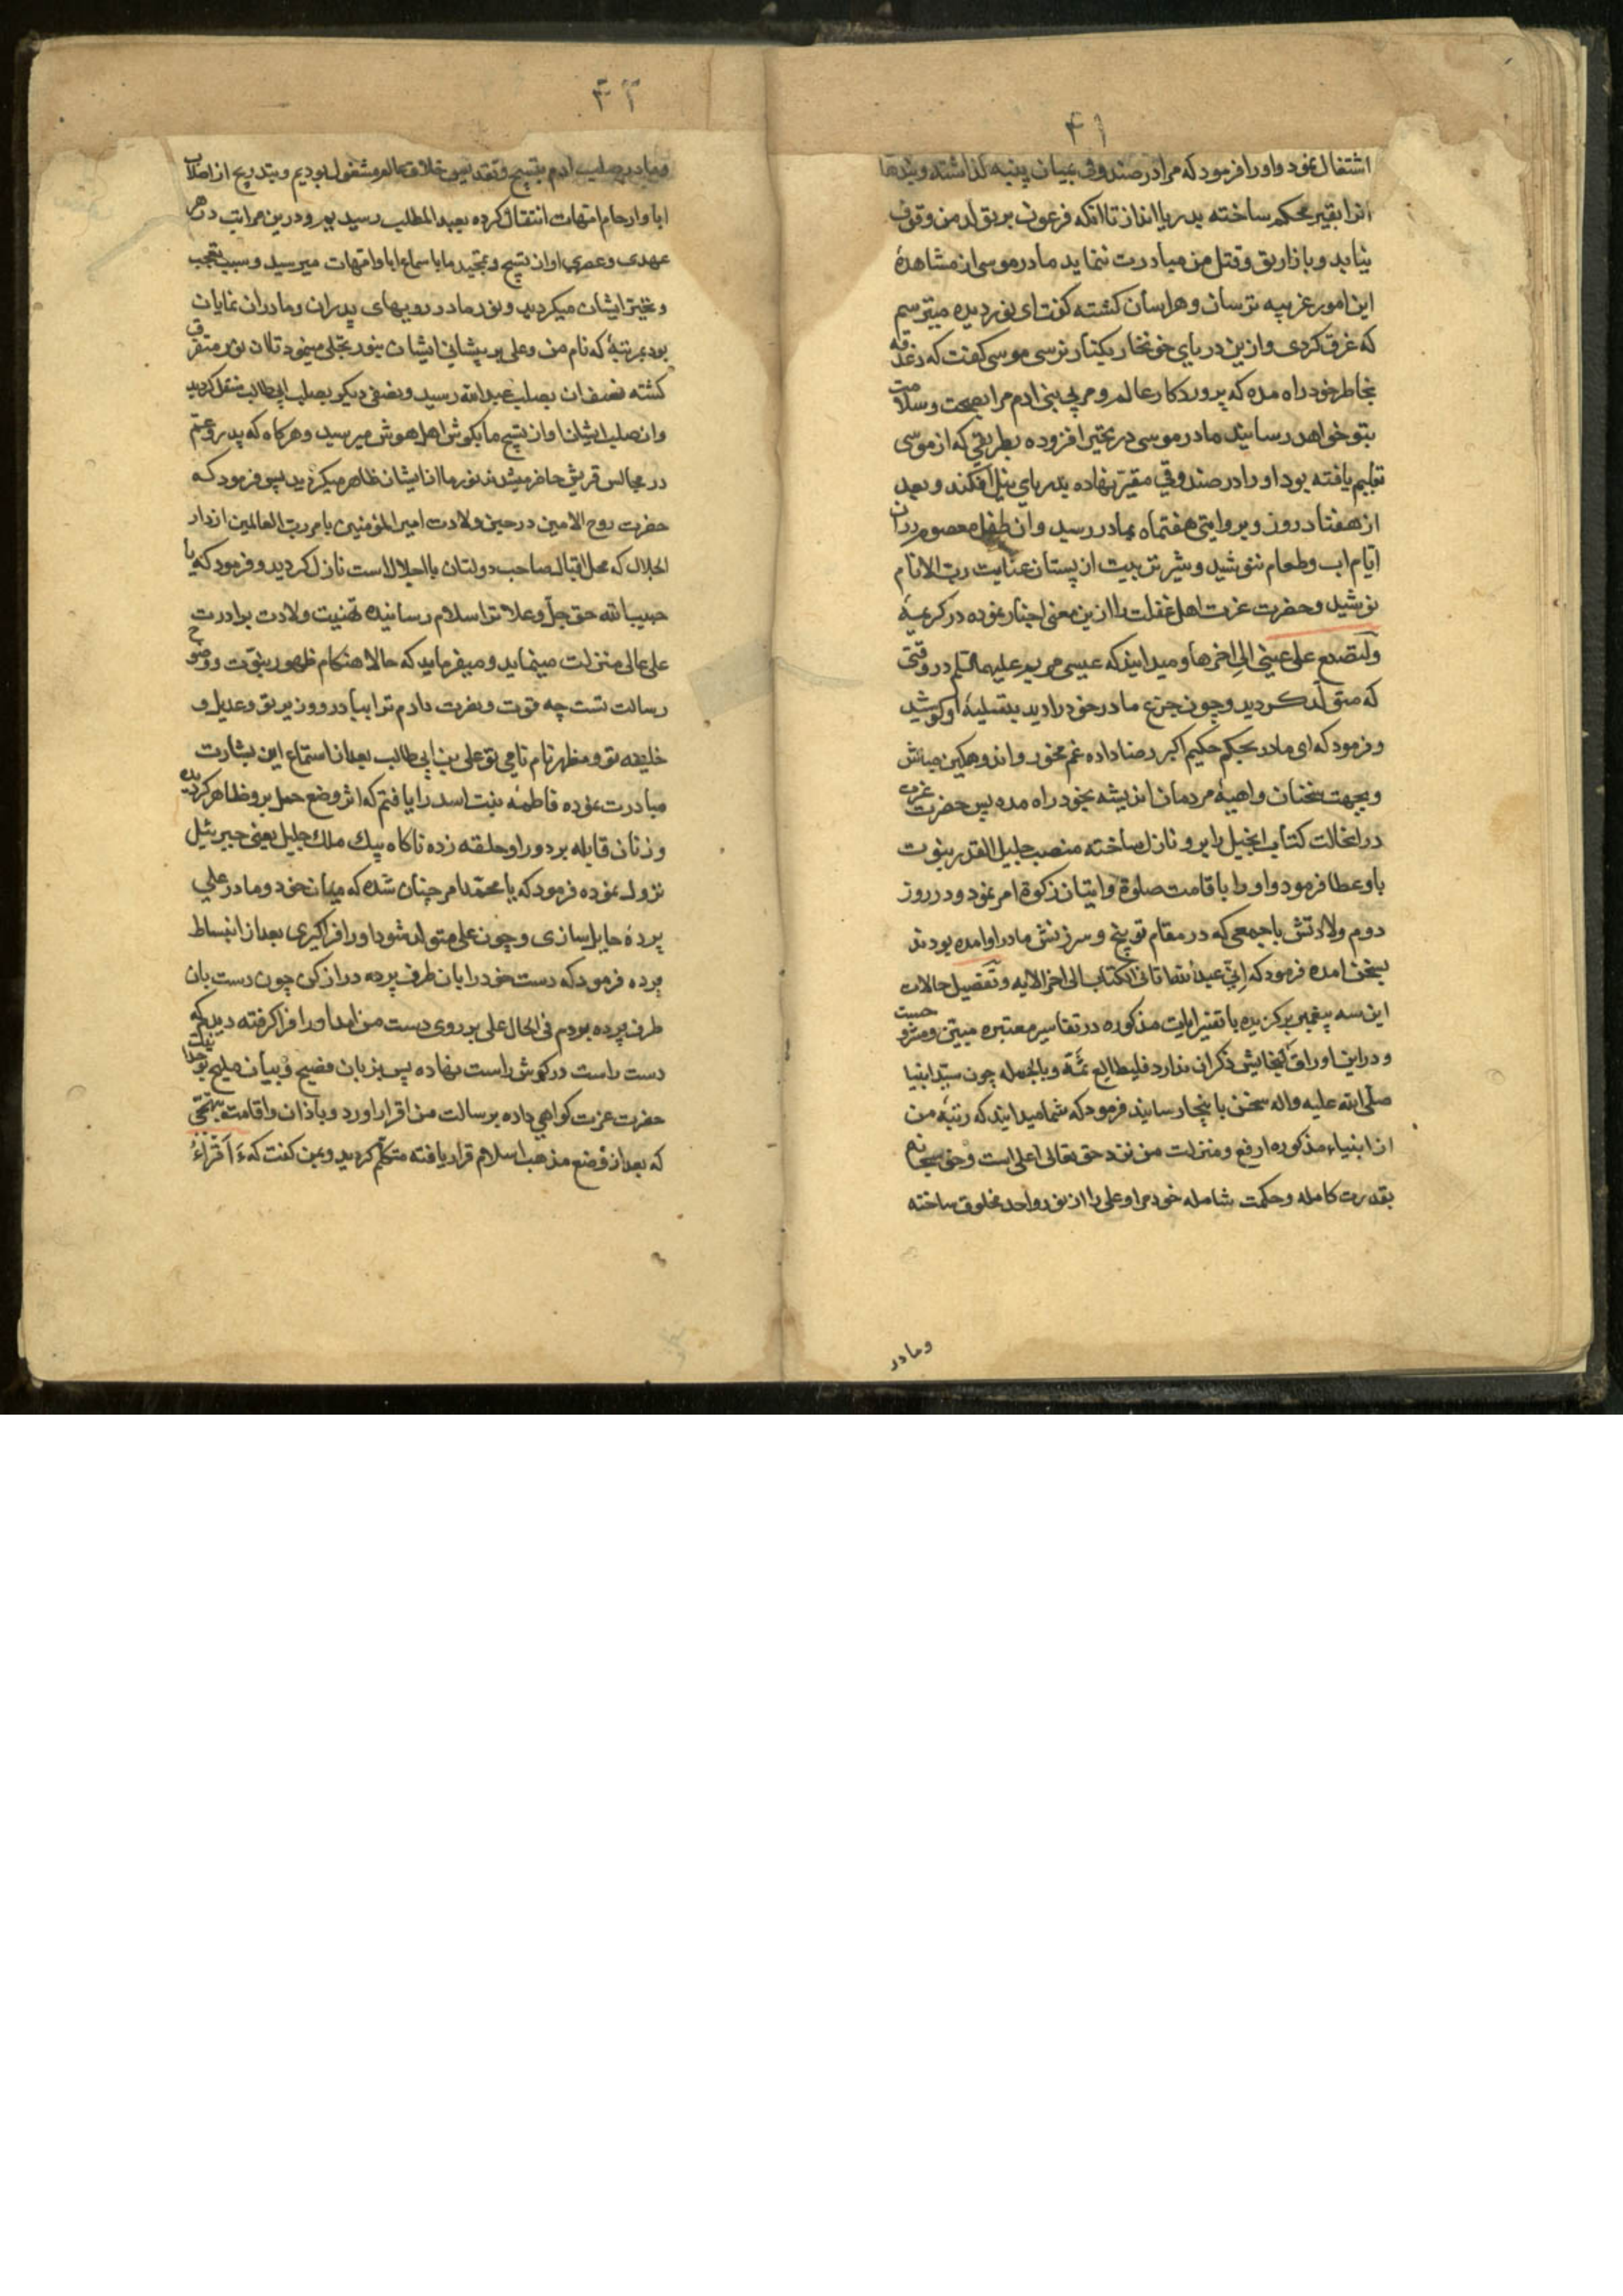 ۴۱
اشتغال نمود و او را فرمود که مرا در صندوقی بمیان پنبه گذاشته و بندها
انرا بقیر محکم ساخته بدریا انداز تا انکه فرعون بر تولد من وقوف
نیابد و بازار تو و قتل من مبادرت ننماید مادر موسی از مشاهدهٔ
این امور غریبه ترسان و هراسان کشته کفت ای نور دیده میترسم
که غرق کردی و ازین دریای خونخار بکنار نرسی موسی کفت که دغدغه
بخاطر خود راه مده که پروردکار عالم و مربی بنی ادم مرا بصحت و سلامت
بتو خواهد رسانید مادر موسی در تحیر افزوده بطریقی که از موسی
تعلیم یافته بود او را در صندوقی مقیر نهاده بدریای نیل افکند و بعد
از هفتاد روز و بروایتی هفتماه بمادر رسید و ان طفل معصوم در ان
ایام اب و طعام ننوشید و شیر تربیت از پستان عنایت رب الانام
نوشید و حضرت عزت اهل غفلت را از ین معنی اخبار نموده در کریمهٔ
ولتصنع علی عینی الی اخرها و میدانید که عیسی مریم علیهما السلم در وقتی
که متولد کردید و چون جزع مادر خود را دید بتسلیهٔ او کوشید
و فرمود که ای مادر بحکم حکیم اکبر رضا داده غم مخور و اندوهکین مباش
و بجهت سخنان واهیهٔ مردمان اندیشه بخود راه مده پس حضرت عزت
در انحالت کتاب انجیل را برو نازل ساخته منصب جلیل القدر نبوت
باو عطا فرمود و او را باقامت صلوة و ایتان زکوة امر نمود و در روز
دوم ولادتش با جمعی که در مقام توبیخ و سرزنش مادر او امده بودند
بسخن امده فرمود که انی عبد الله اتانی الکتاب الی اخر الایه و تفصیل حالات
این سه پیغمبر برکزیده با تفسیر ایات مذکوره در تفاسیر معتبره مبین و مشروحست
و در این اوراق کنجایش ذکر ان ندارد فلیطالع ثمة و بالجمله چون سید انبیا
صلی الله علیه واله سخن باینجا رسانید فرمود که شما میدانید که رتبهٔ من
از انبیاء مذکوره ارفع و منزلت من نزد حق تعالی اعلی است و حق سبحانه
بقدرت کامله و حکمت شامله خود مرا و علی را از نور واحد مخلوق ساخته
و ما در
۴۲
و ما در صلب ادم بتسبیح و تقدیس خلاق عالم مشغول بودیم و بتدریج از اصلاب
ابا و ارحام امهات انتقال کرده بعبد المطلب رسیدیم و درین مراتب در هر
عهدی و عصری اواز تسبیح و تمجید ما باسماع ابا و امهات میرسید و سبب تعجب
و تحیر ایشان میکردید و نور ما در رویهای پدران و مادران نمایان
بود بمرتبهٔ که نام من و علی بر پیشانی ایشان بنور تجلی مینمود تا ان نور متفرق
کشته نصف ان بصلب عبد الله رسید و نصفی دیکر بصلب ابی طالب منتقل کردید
و از صلب ایشان اواز تسبیح ما بکوش اهل هوش میرسید و هرکاه که پدر و عم
در مجالس قریش حاضر میشدند نور ما از ایشان ظاهر میکردید پس فرمود که
حضرت روح الامین در حین ولادت امیر المؤمنین بامر رب العالمین از دار
الجلال که محل اقبال صاحب دولتان با اجلال است نازل کردید و فرمود که یا
حبیب الله حق جل و علا ترا سلام رسانیده تهنیت ولادت برادرت
علی عالی منزلت مینماید و میفرماید که حالا هنکام ظهور نبوت و وضوح
رسالت تست چه قوت و نصرت دادم ترا ببرادر و وزیر تو و عدیل و
خلیفه تو و مظهر نام نامی تو علی بن ابی طالب بعد از استماع این بشارت
مبادرت نموده فاطمه بنت اسد را یافتم که اثر وضع حمل برو ظاهر کردیده
و زنان قابله بر دور او حلقه زده ناکاه پیک ملک جلیل یعنی جبرئیل
نزول نموده فرمود که یا محمد امر چنان شده که میان خود و مادر علی
پردهٔ حایل سازی و چون علی متولد شود او را فراکیری بعد از انبساط
پرده فرمود که دست خود را بان طرف پرده دراز کن چون دست بان
طرف پرده بردم فی الحال علی بر روی دست من امد او را فراکرفته دیدم که
دست راست در کوش راست نهاده پس بزبان فصیح و بیان ملیح بوحدانیت
حضرت عزت کواهی داده برسالت من اقرار اورد و باذان و اقامت بنهجی
که بعد از وضع مذهب اسلام قرار یافته متکلم کردید و بمن کفت که ءَاَقْرَاءُ